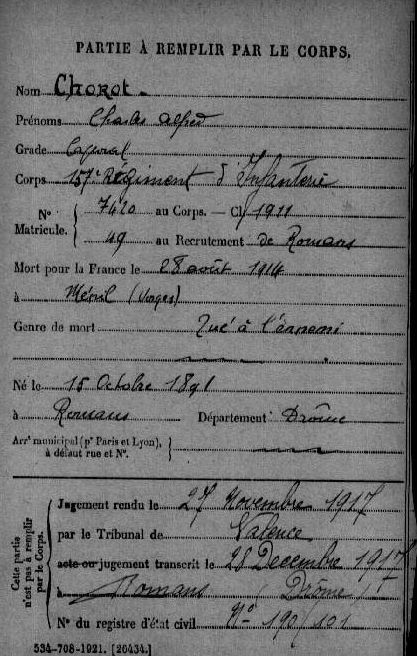 PARTIE À REMPLIR PAR LE CORPS.
Nom Chorot
Prénoms Charles Alfred
Grade Caporal
Corps 157e Régiment d'Infanterie
N° Matricule. { 7420 au Corps. — Cl. 1911
49 au Recrutement de Romans
Mort pour la France le 28 août 1914
à Ménil (Vosges)
Genre de mort Tué à l'ennemi
Né le 15 Octobre 1891
à Romans Département Drôme
Arrt municipal (pr Paris et Lyon), à défaut rue et N°. }
Cette partie n'est pas à remplir par le Corps. {
Jugement rendu le 27 Novembre 1917
par le Tribunal de Valence
acte ou jugement transcrit le 28 Decembre 1917
à Romans Drôme
N° du registre d'état civil N° 190/101
534-708-1921. [26434.]